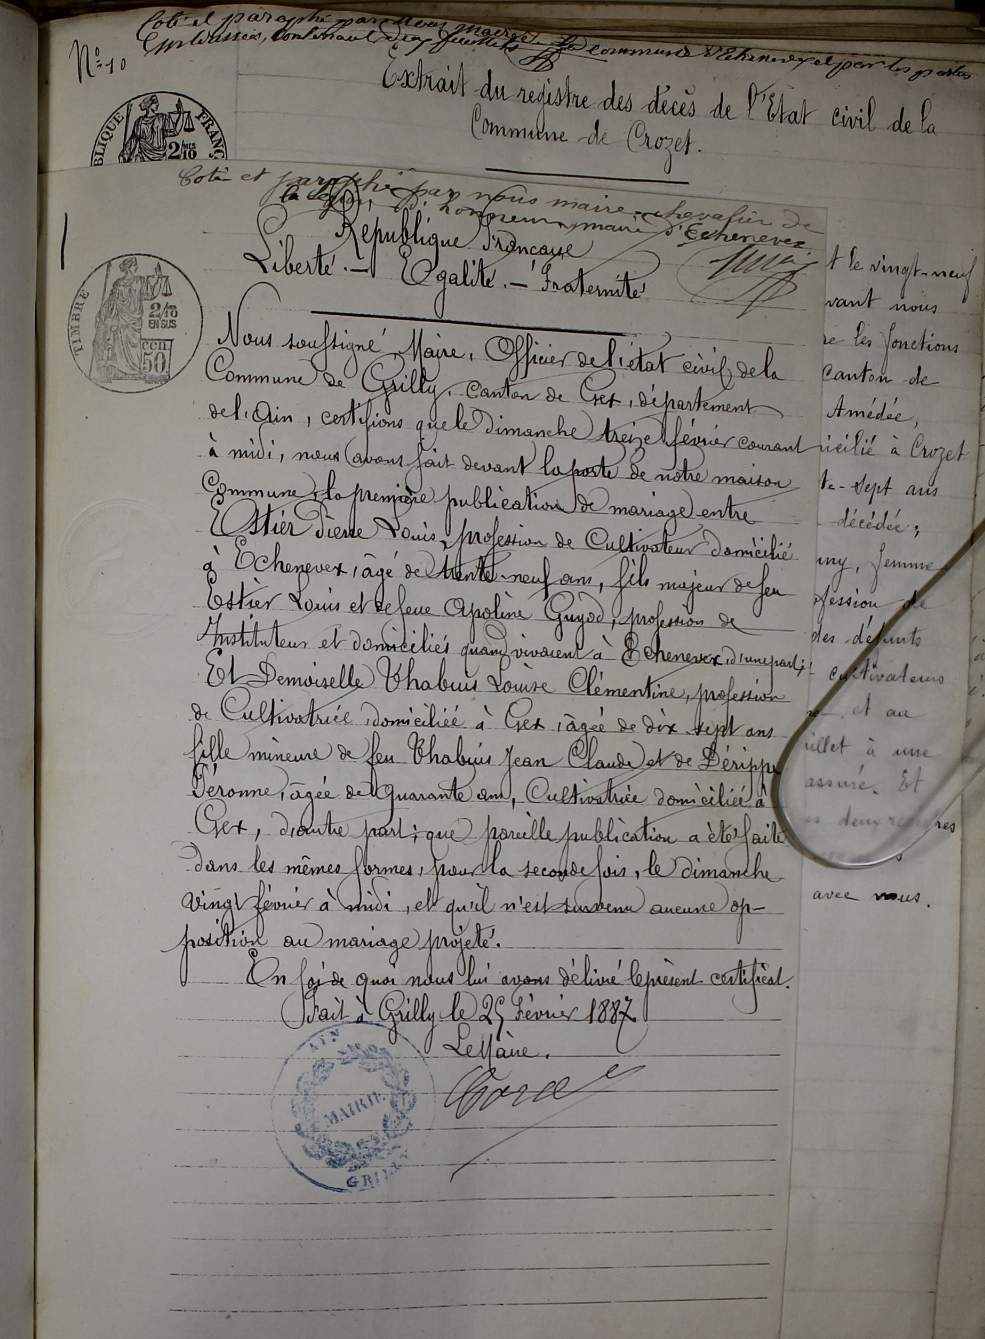 Coté et paraphé par nous maire de la commune d'Echenevex et par les parties
Intéressées, contenant dix feuillets
N° 10
Extrait du registre des décès de l'Etat civil de la
Commune de Crozet.
BLIQUE FRANÇ
2/10
Coté et paraphé par nous maire, chevalier de
la légion d'honneur, maire d'Echenevex
République Française
Liberté. — Egalité. — Fraternité
TIMBRE
2/10
EN SUS
50
Nous soussigné Maire, Officier de l'état civil de la
Commune de Grilly, canton de Gex, département
de l'Ain, certifions que le dimanche treize février courant
à midi, nous avons fait devant la porte de notre maison
Commune, la première publication de mariage entre
Estier Pierre Louis, profession de Cultivateur domicilié
à Echenevex, âgé de trente-neuf ans, fils majeur de feu
Estier Louis et de feue Apoline Guyod, profession de
Instituteur et domiciliés quand vivaient à Echenevex, d'une part;
Et Demoiselle Thabuis Louise Clémentine, profession
de Cultivatrice, domiciliée à Gex, âgée de dix sept ans
fille mineure de feu Thabuis Jean Claude et de Dérippe
Péronne, âgée de quarante ans, Cultivatrice domiciliée à
Gex, d'autre part; que pareille publication a été faite
dans les mêmes formes, pour la seconde fois, le dimanche
vingt février à midi, et qu'il n'est survenu aucune op-
position au mariage projeté.
En foi de quoi nous lui avons délivré le présent certificat.
Fait à Grilly le 25 Février 1887
Le Maire.
AIN
MAIRIE
GRILLY
t le vingt-neuf
vant nous
re les fonctions
canton de
Amédée,
icilié à Crozet
te-sept ans
décédée;
uny, femme
ofession de
des défunts
cultivateurs
et au
illet à une
assuré. Et
es deux registres
avec nous.